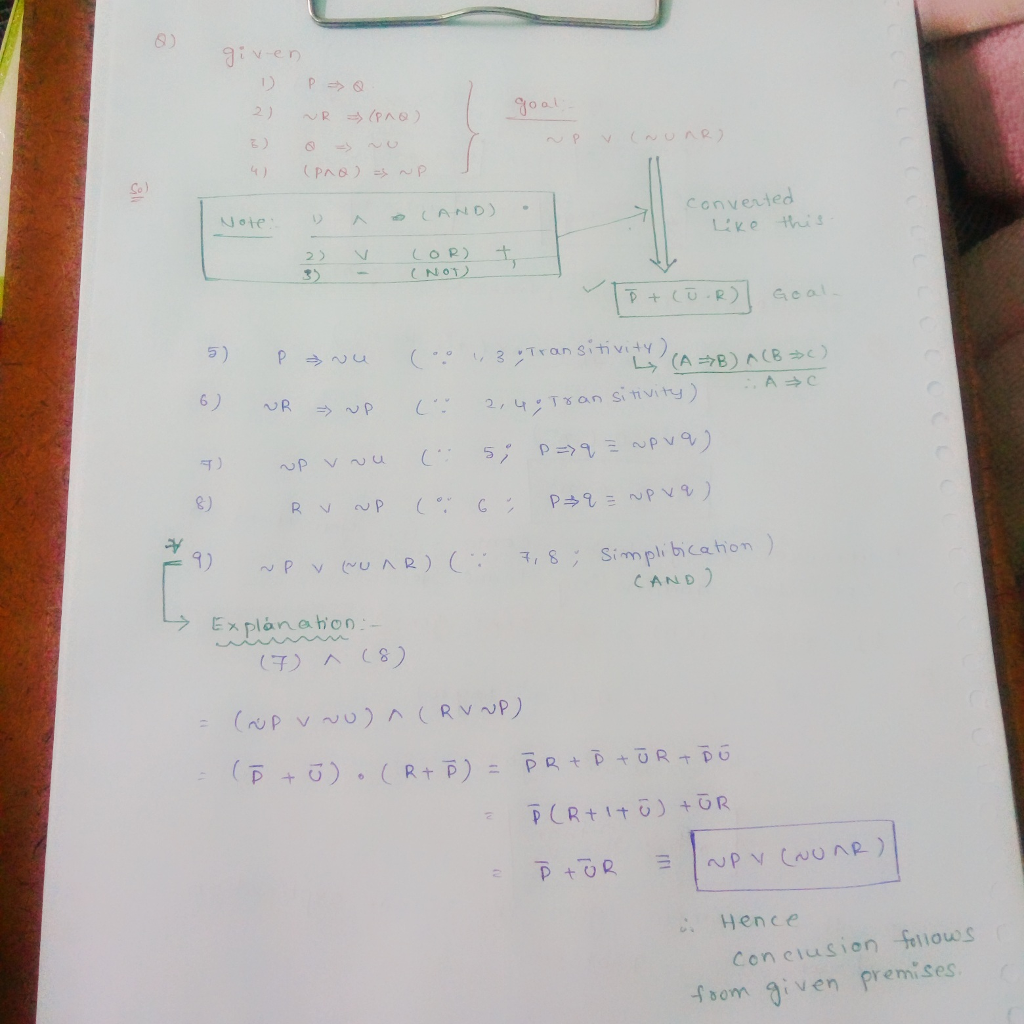 Q)
given
1) P ⇒ Q
2) ~R ⇒ (P∧Q)
3) Q ⇒ ~U
4) (P∧Q) ⇒ ~P
goal:-
~P ∨ (~U ∧ R)
Sol
Note: 1) ∧ ⇒ (AND) •
2) ∨ (OR) +,
3) – (NOT)
converted
Like this
P̅ + (U̅.R) Goal-
5) P ⇒ ~U (∵ 1, 3 ; Transitivity)
↳ (A ⇒ B) ∧ (B ⇒ C)
∴ A ⇒ C
6) ~R ⇒ ~P (∵ 2, 4 ; Transitivity)
7) ~P ∨ ~U (∵ 5; P ⇒ q ≡ ~P ∨ q)
8) R ∨ ~P (∵ 6 ; P ⇒ q ≡ ~P ∨ q)
9) ~P ∨ (~U ∧ R) (∵ 7, 8 ; Simplibication)
(AND)
Explanation:-
(7) ∧ (8)
= (~P ∨ ~U) ∧ (R ∨ ~P)
= (P̅ + U̅) • (R + P̅) = P̅R + P̅ + U̅R + P̅U̅
= P̅(R+1+U̅) + U̅R
= P̅ + U̅R ≡ ~P ∨ (~U ∧ R)
∴ Hence
conclusion follows
from given premises.